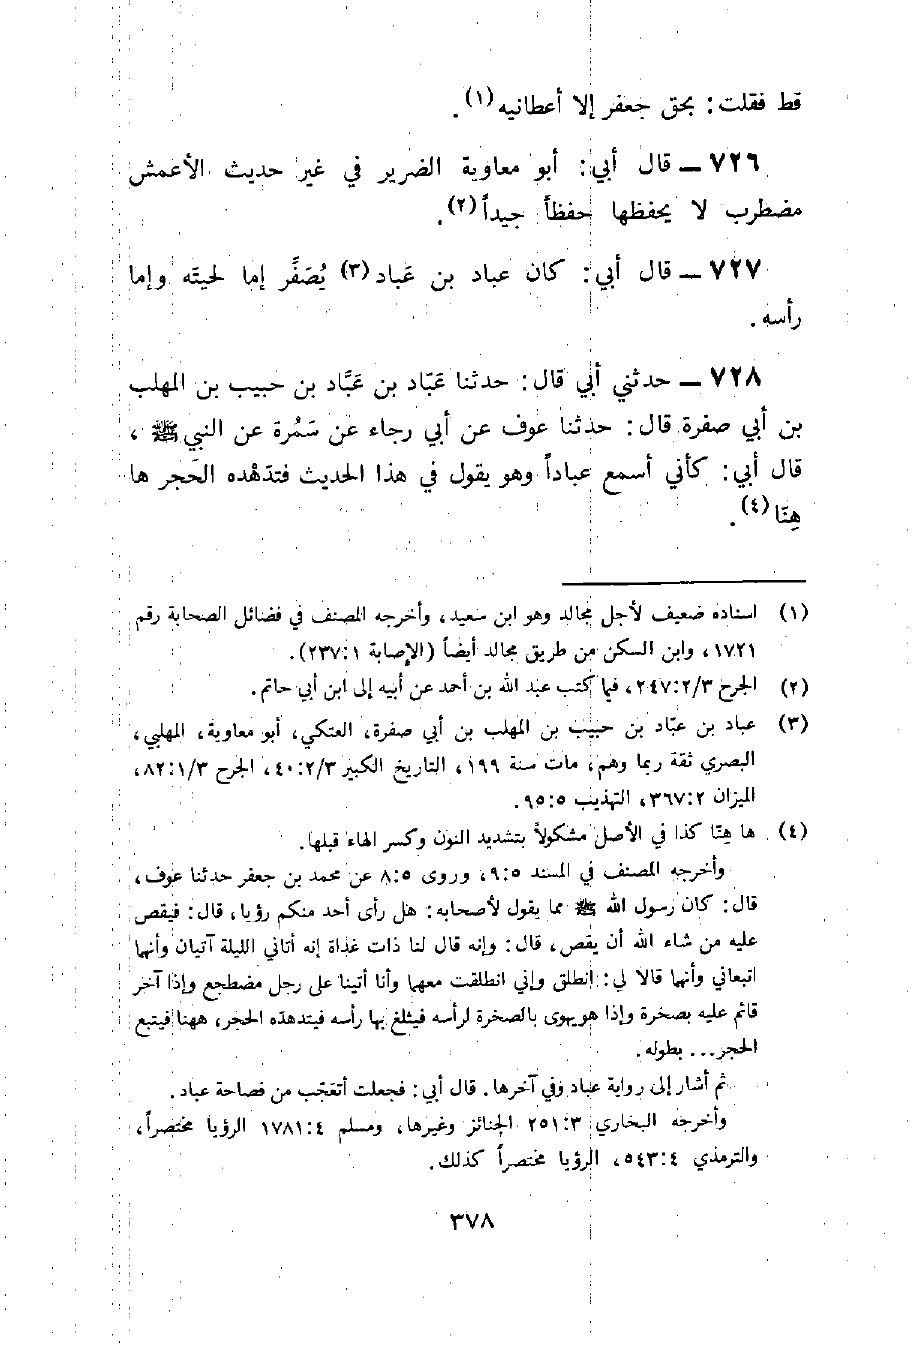 قط فقلت : بحق جعفر إلا أعطانيه (١) .
٧٢٦ ــ قال أبي : أبو معاوية الضرير في غير حديث الأعمش
مضطرب لا يحفظها حفظاً جيداً (٢) .
٧٢٧ ــ قال أبي : كان عباد بن عَباد (٣) يُصَفَّر إما لحيتَه وإما
رأسه .
٧٢٨ ــ حدثني أبي قال : حدثنا عَبّاد بن عَبَّاد بن حبيب بن المهلب
بن أبي صفرة قال : حدثنا عوف عن أبي رجاء عن سَمُرة عن النبي ﷺ ،
قال أبي : كأني أسمع عباداً وهو يقول في هذا الحديث فتدَهْده الحَجر ها
هِنّا (٤) .
(١) اسناده ضعيف لأجل مجالد وهو ابن سعيد، وأخرجه المصنف في فضائل الصحابة رقم
١٧٢١، وابن السكن من طريق مجالد أيضاً (الإصابة ٢٣٧:١).
(٢) الجرح ٢٤٧:٢/٣، فيما كتب عبد الله بن أحمد عن أبيه إلى ابن أبي حاتم.
(٣) عباد بن عبّاد بن حبيب بن المهلب بن أبي صفرة، العتكي، أبو معاوية، المهلبي،
البصري ثقة ربما وهم، مات سنة ١٩٩، التاريخ الكبير ٤٠:٢/٣، الجرح ٨٢:١/٣،
الميزان ٣٦٧:٢، التهذيب ٩٥:٥.
(٤) ها هِنّا كذا في الأصل مشكولاً بتشديد النون وكسر الهاء قبلها.
وأخرجه المصنف في المسند ٩:٥، وروى ٨:٥ عن محمد بن جعفر حدثنا عوف،
قال: كان رسول الله ﷺ مما يقول لأصحابه: هل رأى أحد منكم رؤيا، قال: فيقص
عليه من شاء الله أن يقص، قال: وإنه قال لنا ذات غداة إنه أتاني الليلة آتيان وأنهما
ابتعاني وأنهما قالا لي: انطلق وإني انطلقت معهما وأنا أتينا على رجل مضطجع وإذا آخر
قائم عليه بصخرة وإذا هو يهوى بالصخرة لرأسه فيثلغ بها رأسه فيتدهده الحجر، ههنا فيتبع
الحجر... بطوله.
ثم أشار إلى رواية عباد وفي آخرها. قال أبي: فجعلت أتعجّب من فصاحة عباد.
وأخرجه البخاري ٢٥١:٣ الجنائز وغيرها، ومسلم ١٧٨١:٤ الرؤيا مختصراً،
والترمذي ٥٤٣:٤، الرؤيا مختصراً كذلك.
٣٧٨